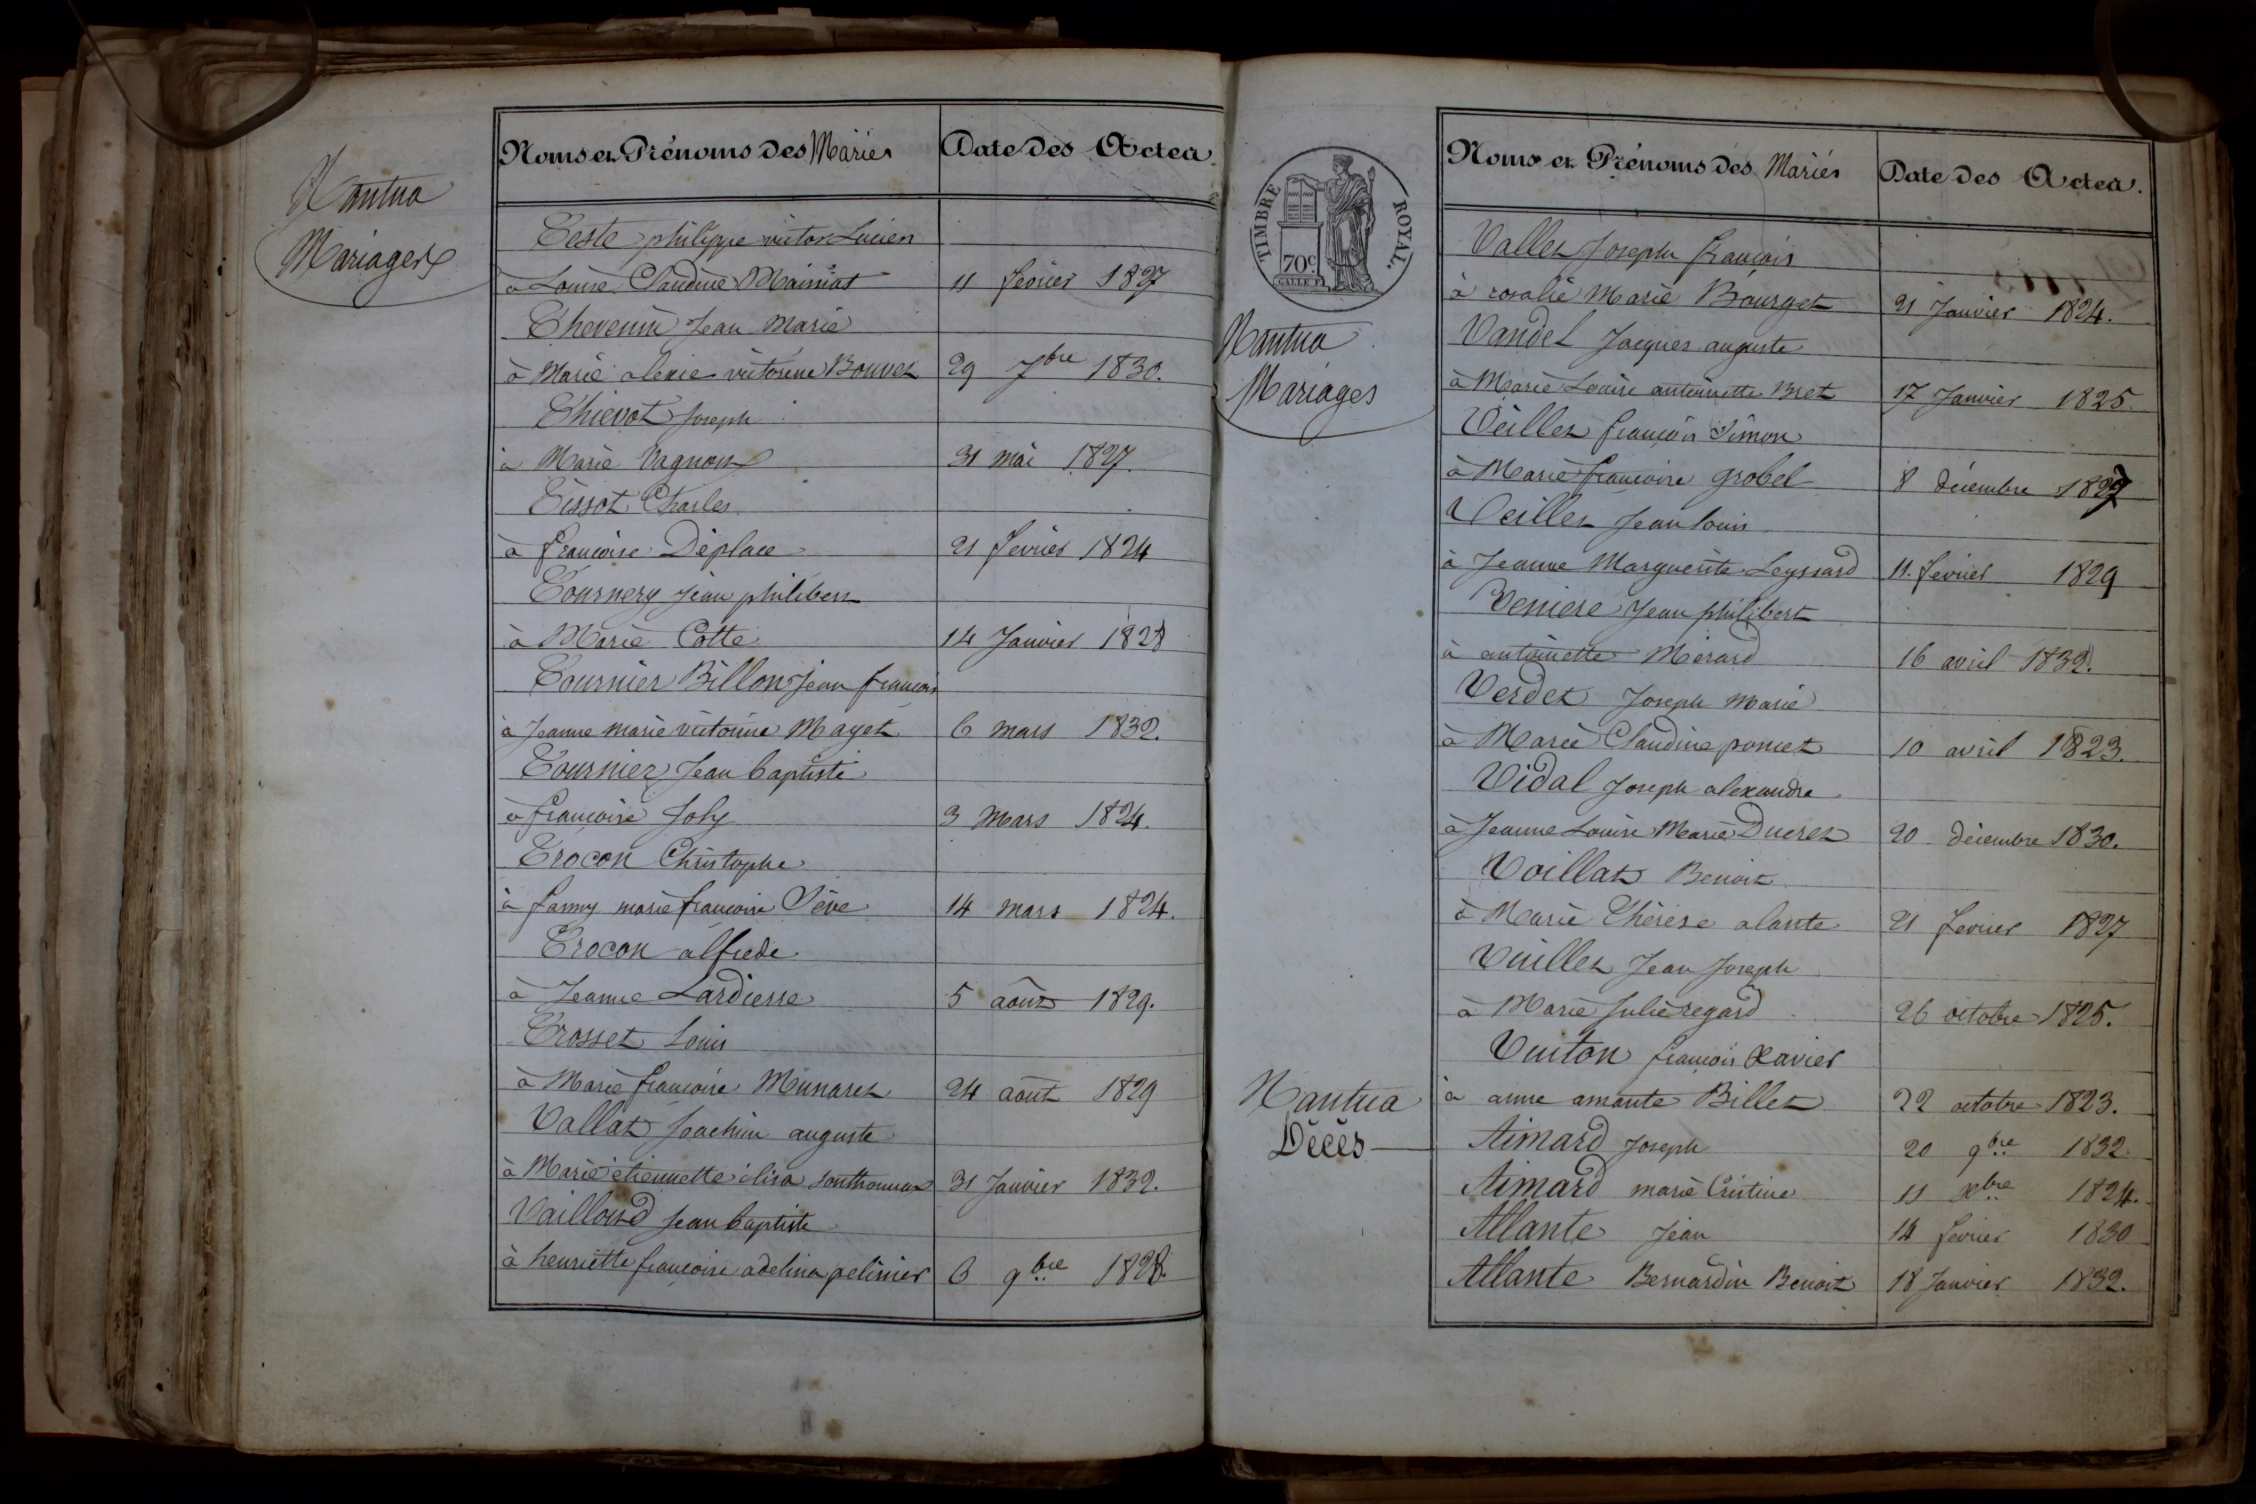 Nantua
Mariages
Noms et Prénoms des Mariés Date des Actes
Teste philippe victor Lucien
à Louise Claudine Mainiat 11 fevrier 1827
Thevenin Jean Marie
à Marie alexie victorine Bouvet 29 7bre 1830.
Thievot Joseph
à Marie Vagnon 31 mai 1827.
Tissot Charles
à françoise Déplace 21 fevrier 1824
Tournery jean philibert
à Marie Cotte 14 Janvier 1828
Tournier Billon Jean françois
à Jeanne marie victorine Mayet 6 mars 1832.
Tournier Jean baptiste
à françoise Joly 3 Mars 1824.
Trocon Christophe
à fanny marie françoise Sève 14 mars 1824.
Trocon alfrede
à Jeanne Lardiesse 5 août 1829.
Trosset Louis
à Marie françoise Munaret 24 août 1829
Vallat Joachim auguste
à Marie étiennette élisa sonthonnax 31 Janvier 1832.
Vailloud Jean baptiste
à henriette françoise adelina pelinier 6 9bre 1828.
TIMBRE ROYAL.
70c.
Nantua
Mariages
Noms et Prénoms des Mariés Date des Actes.
Vallet Joseph françois
à rosalie Marie Bourget 21 Janvier 1824.
Vandel Jacques auguste
à Marie Louise antoinette Bret 17 Janvier 1825.
Veillet françois Simon
à Marie françoise grobel 8 décembre 1827
Veillet Jean louis
à Jeanne Marguerite Leyssard 11. fevrier 1829
Veniere Jean philibert
à antoinette Mérard 16 avril 1832.
Verdet Joseph Marie
à Marie Claudine poncet 10 avril 1823.
Vidal Joseph alexandre
à Jeanne Louise Marie Ducret 20 décembre 1830.
Voillat Benoit
à Marie Thérèse alante 21 fevrier 1827
Vuillet Jean Joseph
à Marie Julie regard 26 octobre 1825.
Vuiton françois Xavier
à anne amante Billet 22 octobre 1823.
Nantua
Décès
Aimard Joseph 20 9bre 1832.
Aimard marie Cristine 11 Xbre 1824.
Allante Jean 14 fevrier 1830
Allante Bernardin Benoit 18 Janvier 1832.